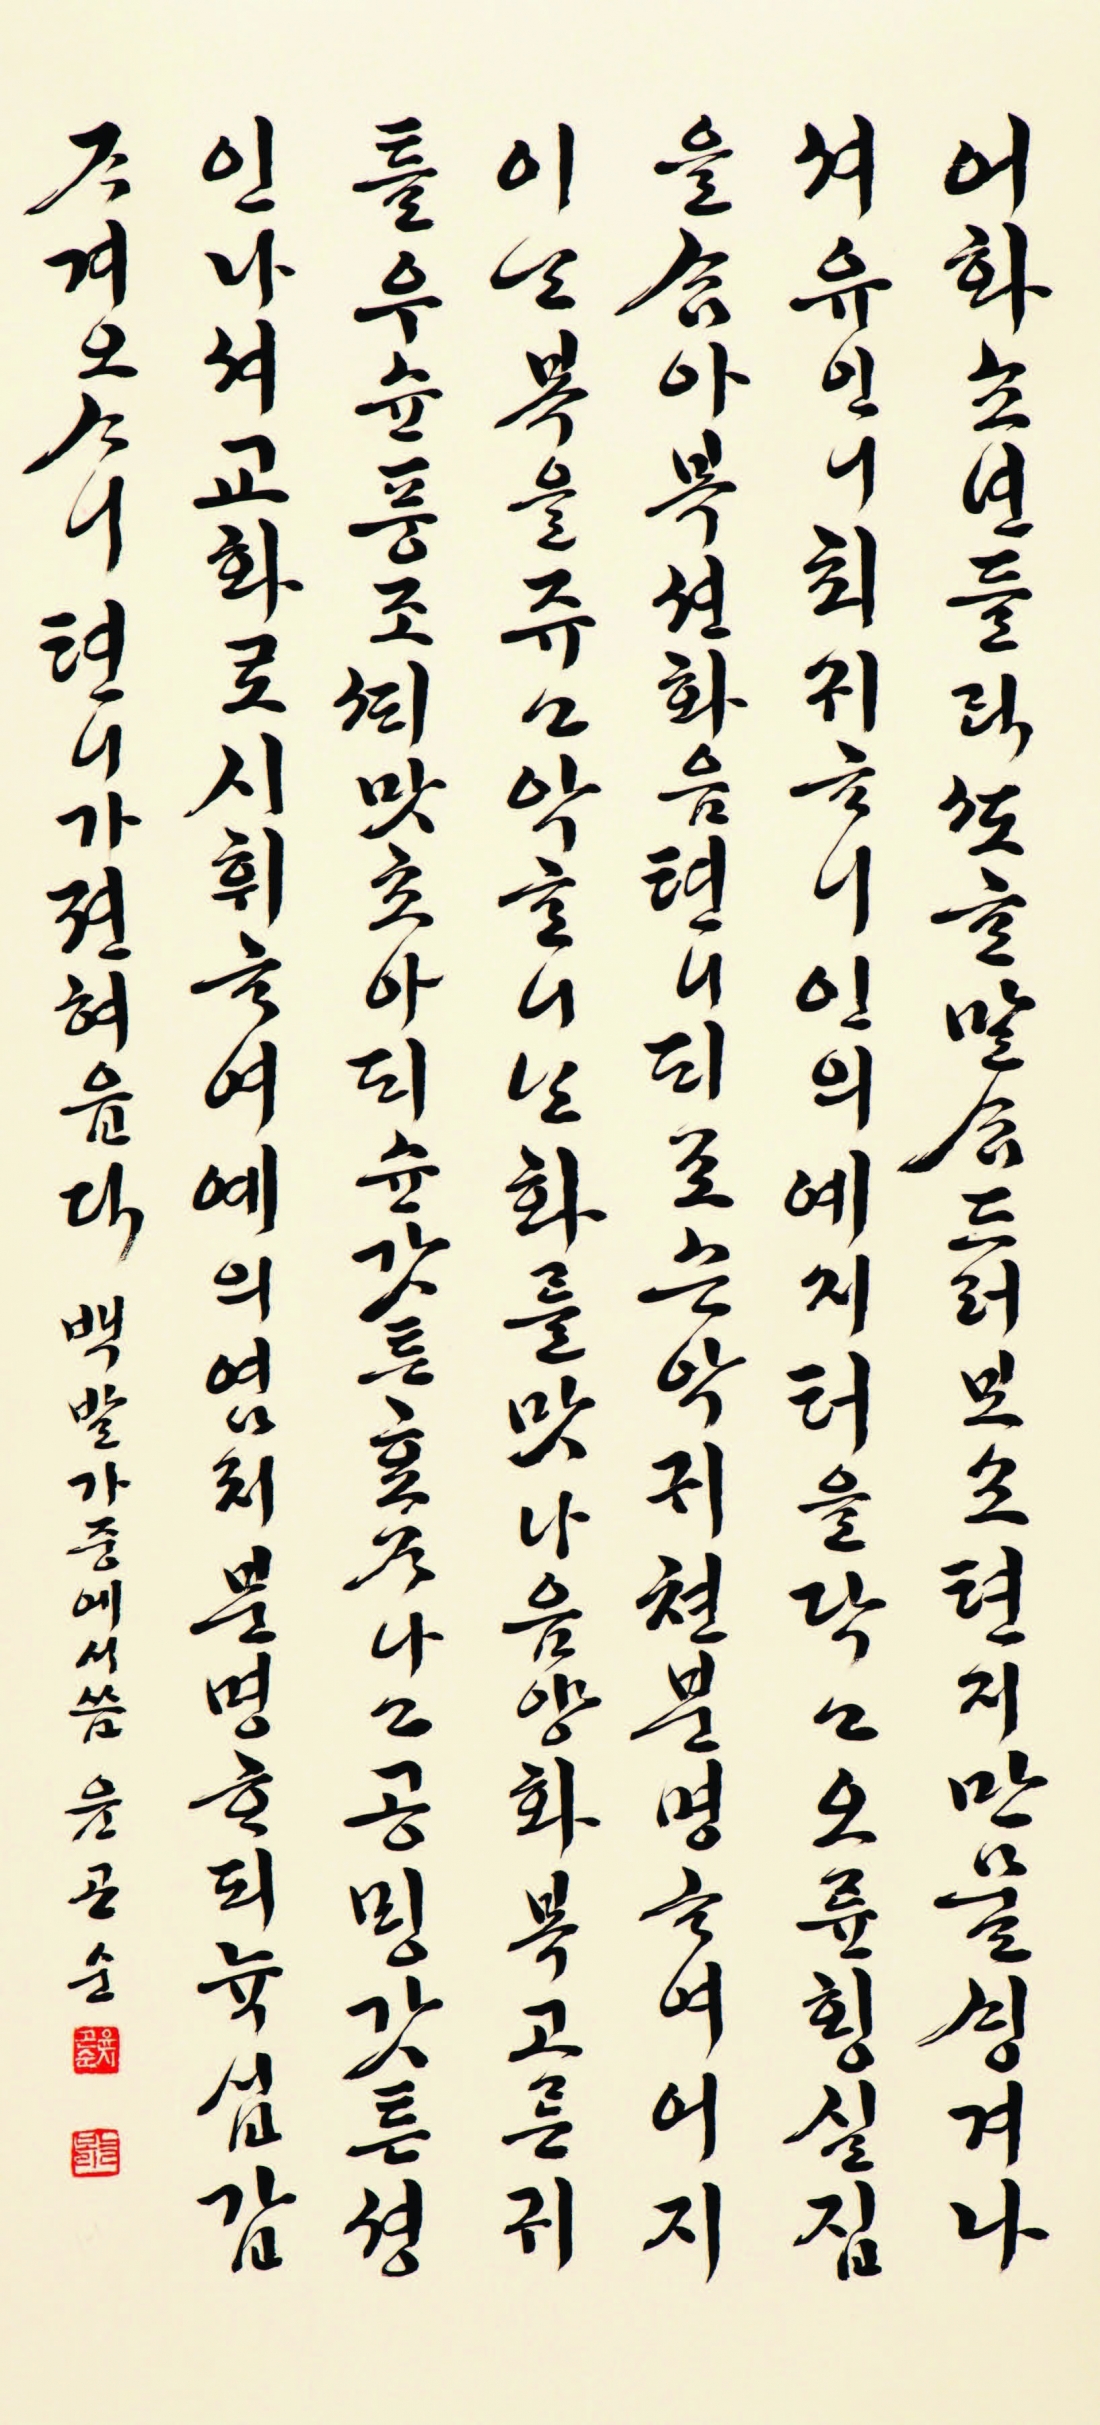 어화소년들라ᄯᅩᄒᆞᆫ말ᄉᆞᆷ드러보소텬지만믈ᄉᆡᆼ겨나
셔유인니최귀ᄒᆞ니인의예지터을닥고오륜ᄒᆡᆼ실집
을ᄉᆞᆷ아복션화음텬니되로ᄉᆞᆫ악귀쳔분명ᄒᆞ여어지
이ᄂᆞᆫ복을쥬고악ᄒᆞᆫ니ᄂᆞᆫ화를맛나음양화복고른귀
틀우슌풍조ᄯᆡ맛초아되슌갓튼효ᄌᆞ나고공ᄆᆡᆼ갓튼셩
인나셔교화로시휘ᄒᆞ여예의염치분명ᄒᆞ되뉵십갑
ᄌᆞ겨오ᄉᆞ니 텬니가젼혀읍다 백발가중에서씀 윤곤순